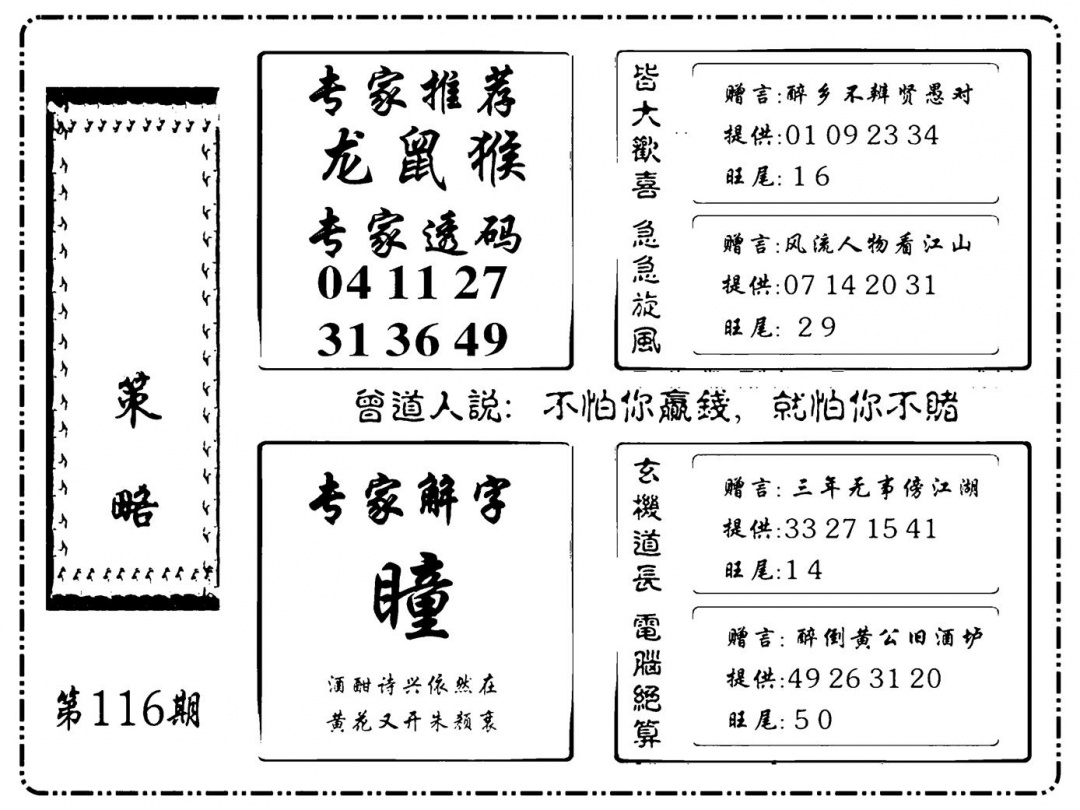 策略
第116期
专家推荐
龙鼠猴
专家透码
04 11 27
31 36 49
皆大歡喜
赠言:醉乡不辩贤愚对
提供:01 09 23 34
旺尾: 1 6
急急旋風
赠言:风流人物看江山
提供:07 14 20 31
旺尾: 2 9
曾道人説: 不怕你贏錢, 就怕你不賭
专家解字
瞳
酒酣诗兴依然在
黄花又开朱颜衰
玄機道長
赠言: 三年无事傍江湖
提供:33 27 15 41
旺尾: 1 4
電腦絕算
赠言: 醉倒黄公旧酒垆
提供:49 26 31 20
旺尾: 5 0